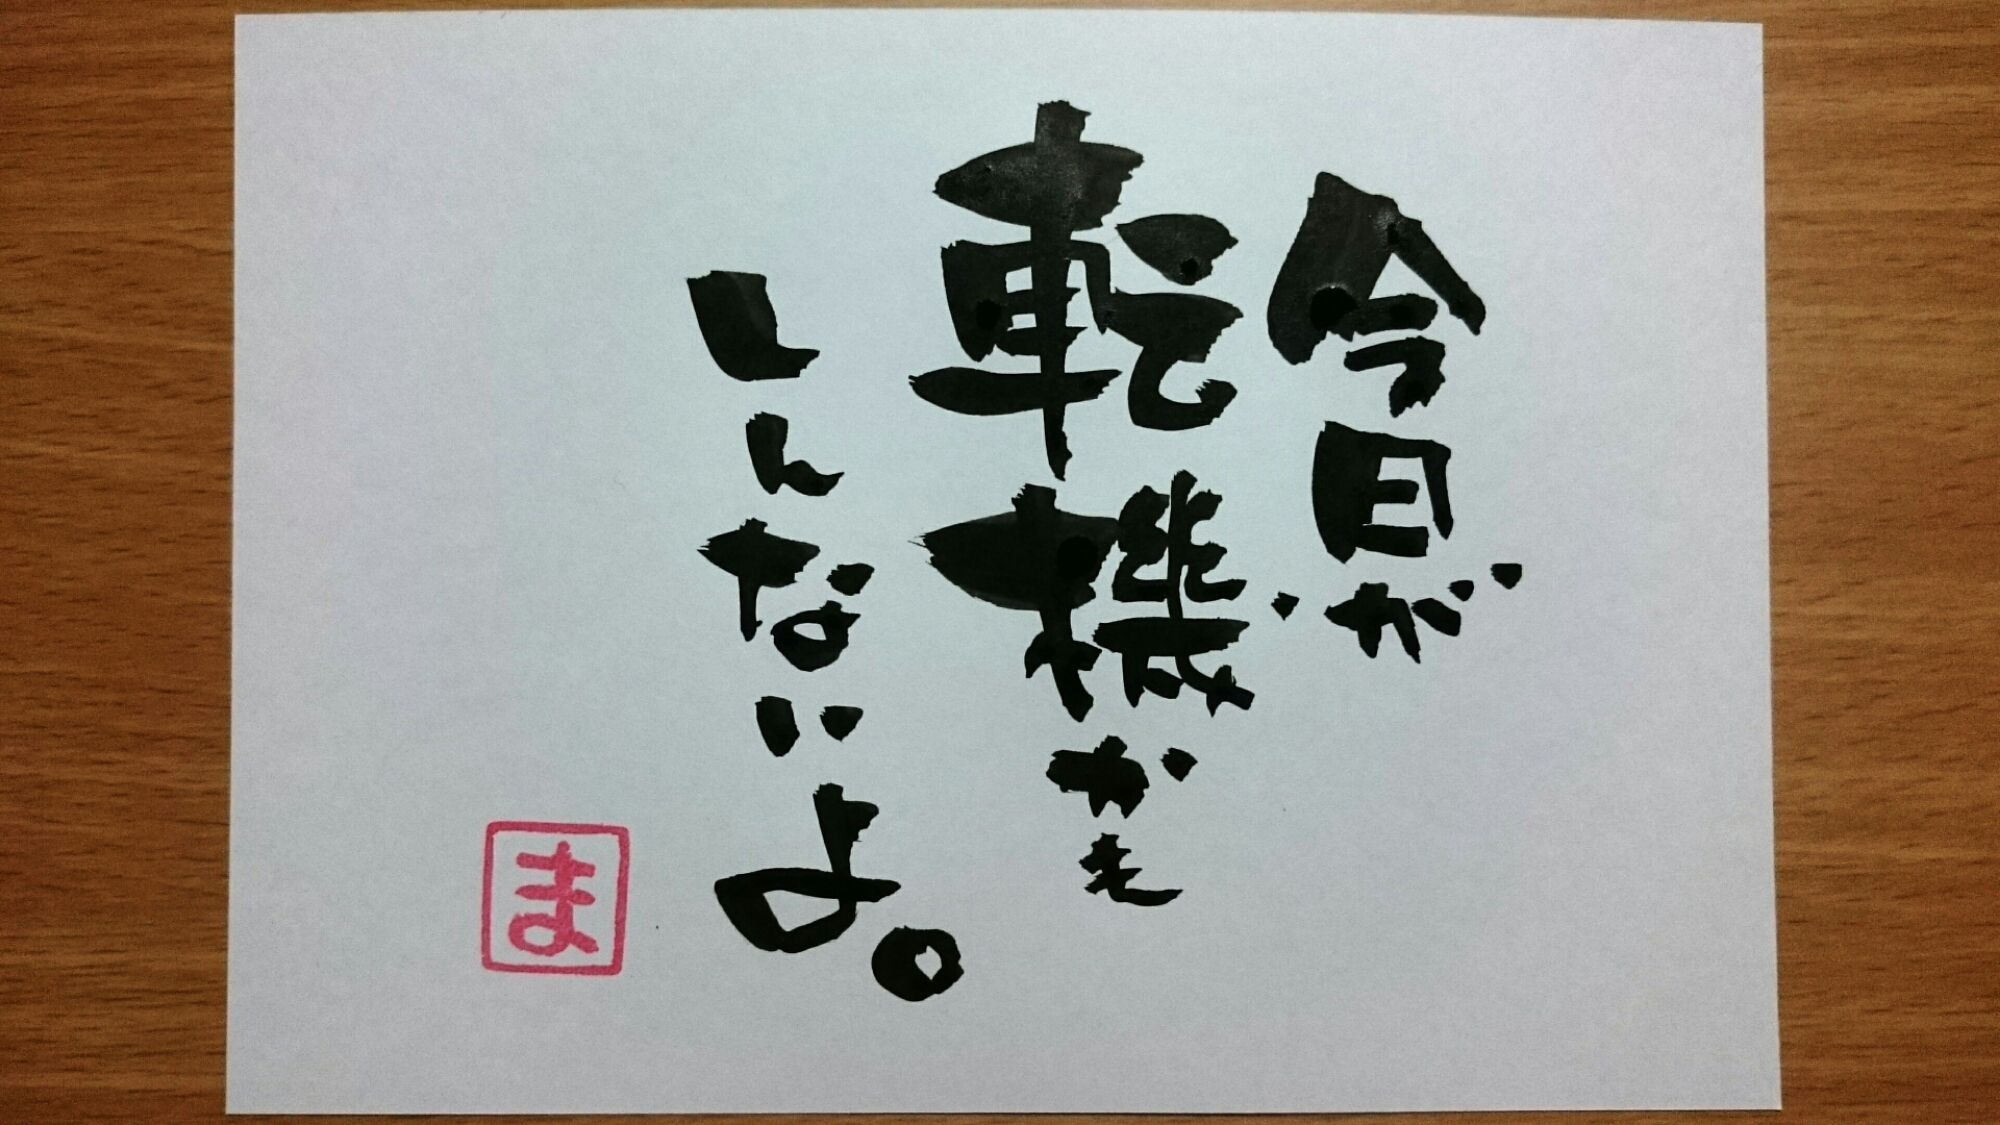 今日が
転機かも
しんないよ。
ま